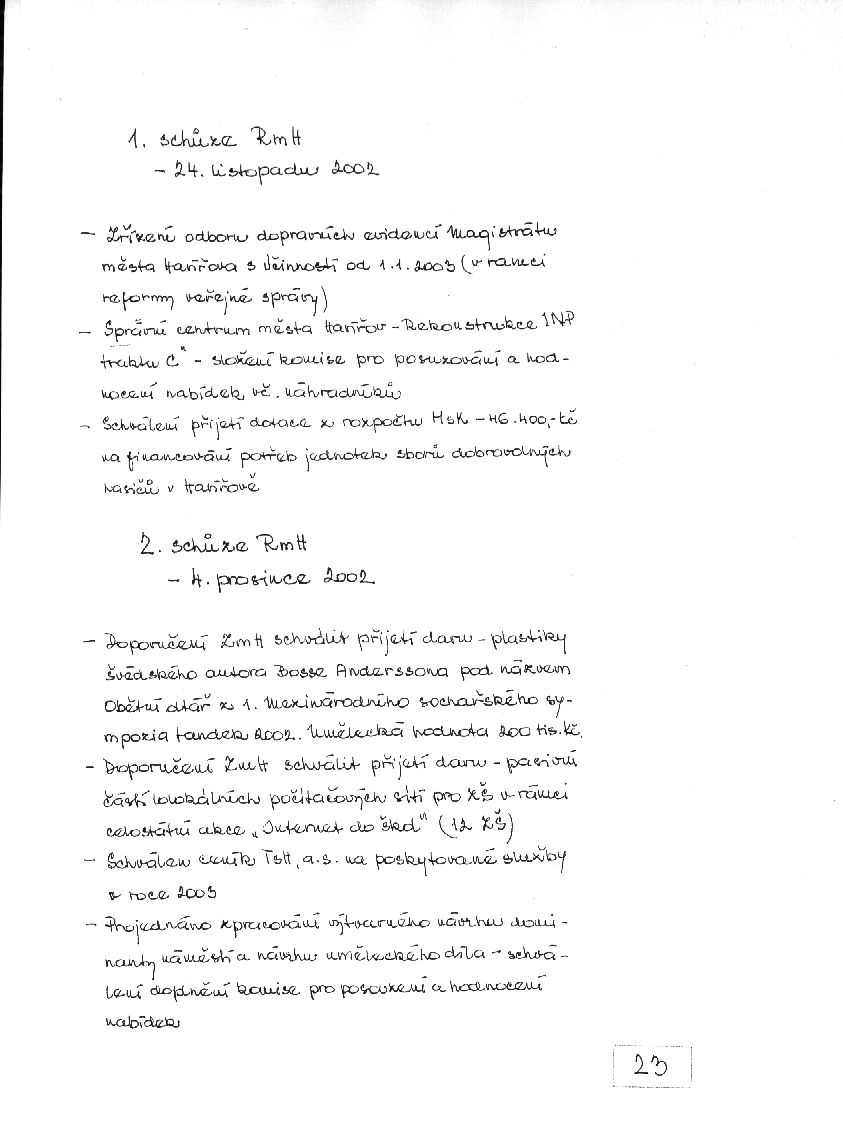 1. schůze RmH
- 24. listopadu 2002
- Zřízení odboru dopravních evidencí Magistrátu
města Havířova s účinností od 1.1.2003 (v rámci
reformy veřejné správy)
- Správní centrum města Havířov - Rekonstrukce 1NP
traktu C" - složení komise pro posuzování a hod-
nocení nabídek vč. náhradníků
- Schválení přijetí dotace z rozpočtu MsK - 46.400,- Kč
na financování potřeb jednotek sborů dobrovolných
hasičů v Havířově
2. schůze RmH
- 4. prosince 2002
- Doporučení ZmH schválit přijetí daru - plastiky
švédského autora Bosse Anderssona pod názvem
Obětní oltář z 1. Mezinárodního sochařského sy-
mpozia Landek 2002. Umělecká hodnota 200 tis.Kč.
- Doporučení ZmH schválit přijetí daru - pasivní
částí lokálních počítačových sítí pro ZŠ v rámci
celostátní akce „Internet do škol" (12 ZŠ)
- Schválen ceník TSH, a.s. na poskytované služby
v roce 2003
- Projednáno zpracování výtvarného návrhu domi-
nanty náměstí a návrhu uměleckého díla - schvá-
lení doplnění komise pro posouzení a hodnocení
nabídek
23